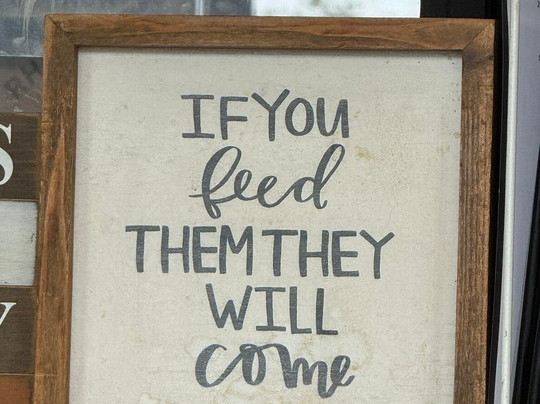 IF YOU
feed
THEM THEY
WILL
come